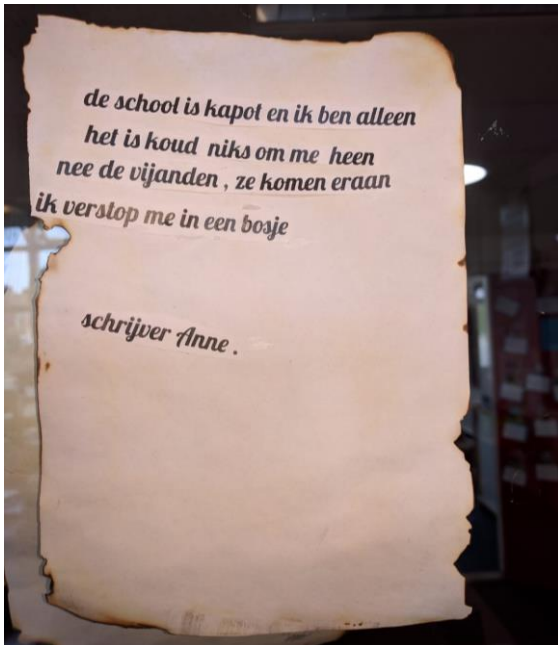 de school is kapot en ik ben alleen
het is koud niks om me heen
nee de vijanden , ze komen eraan
ik verstop me in een bosje
schrijver Anne .